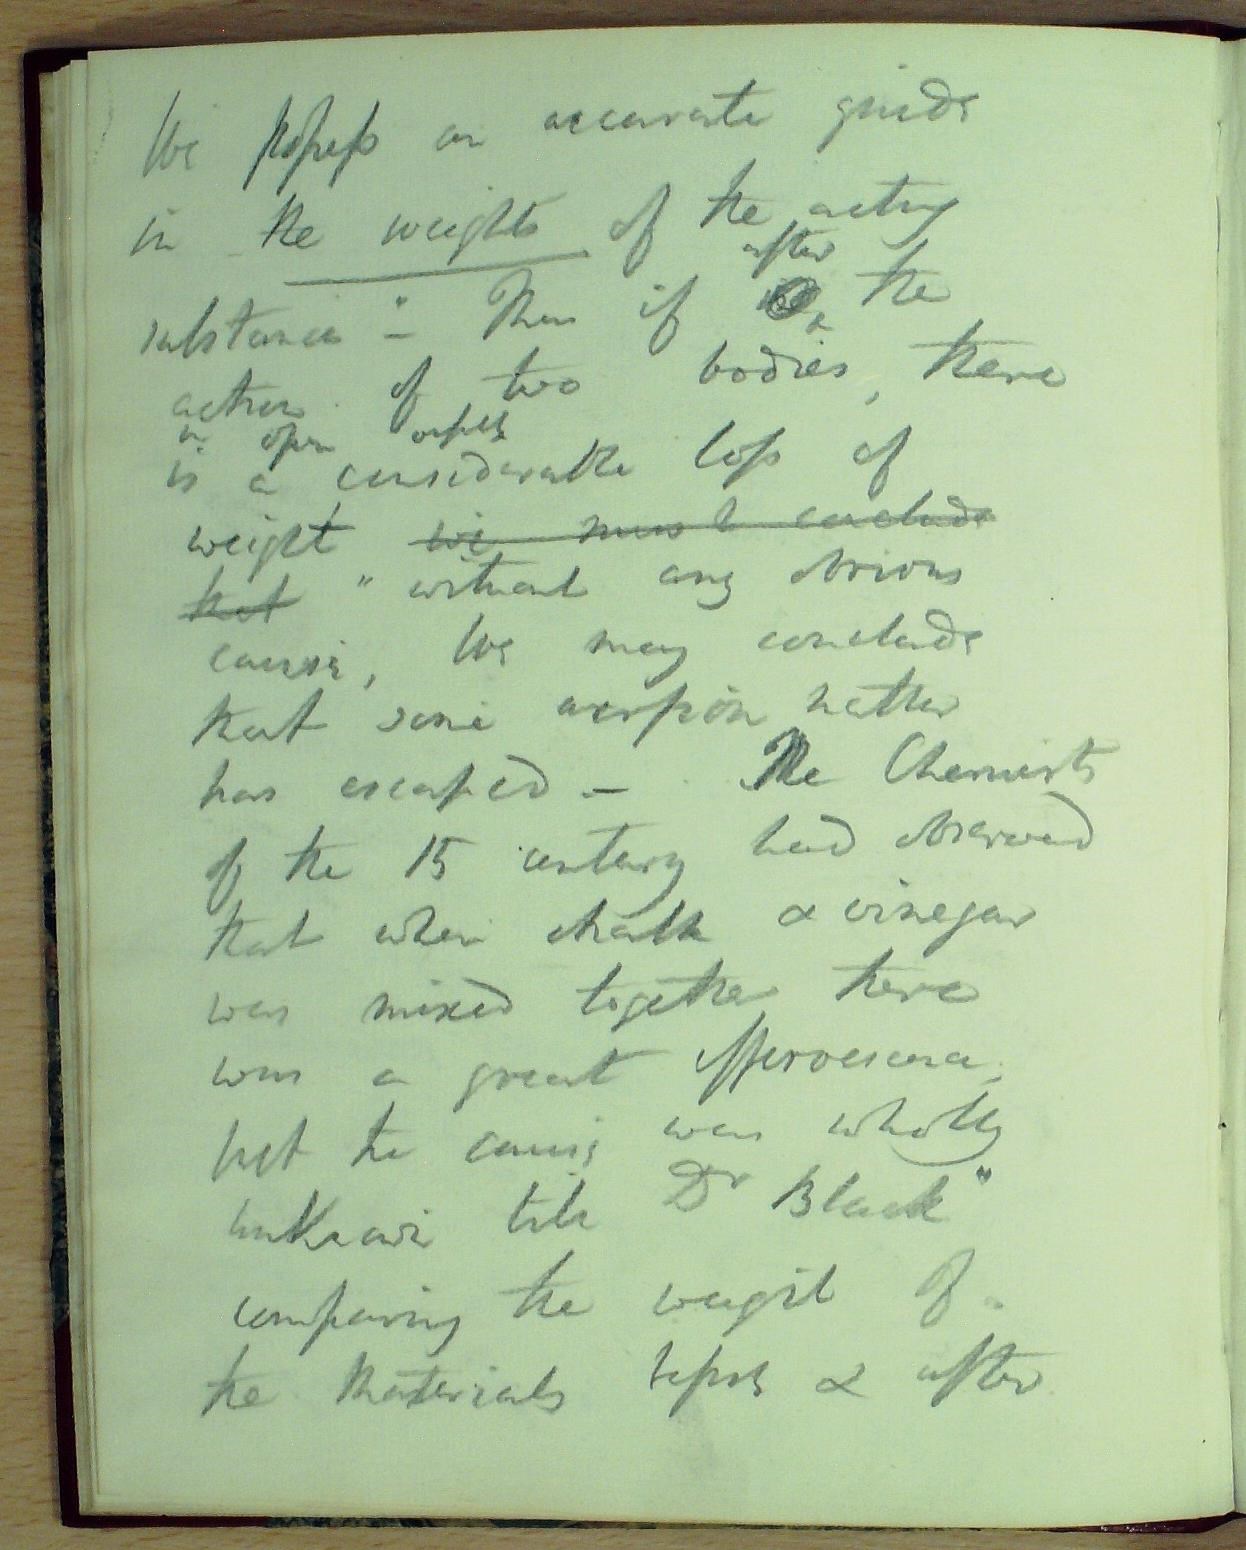 We possess an accurate guide
in the weights of the acting
after
substances" - Thus if the
action of two bodies, there
in open vessels
is a considerable loss of
weight we must conclude
that " without any obvious
cause, We may conclude
that some aeriform matter
has escaped - The Chemists
of the 15 century had observed
that when chalk & vinegar
was mixed together there
was a great effervescence
but the cause was wholly
unknown till Dr Black"
comparing the weight of
the Materials before & after